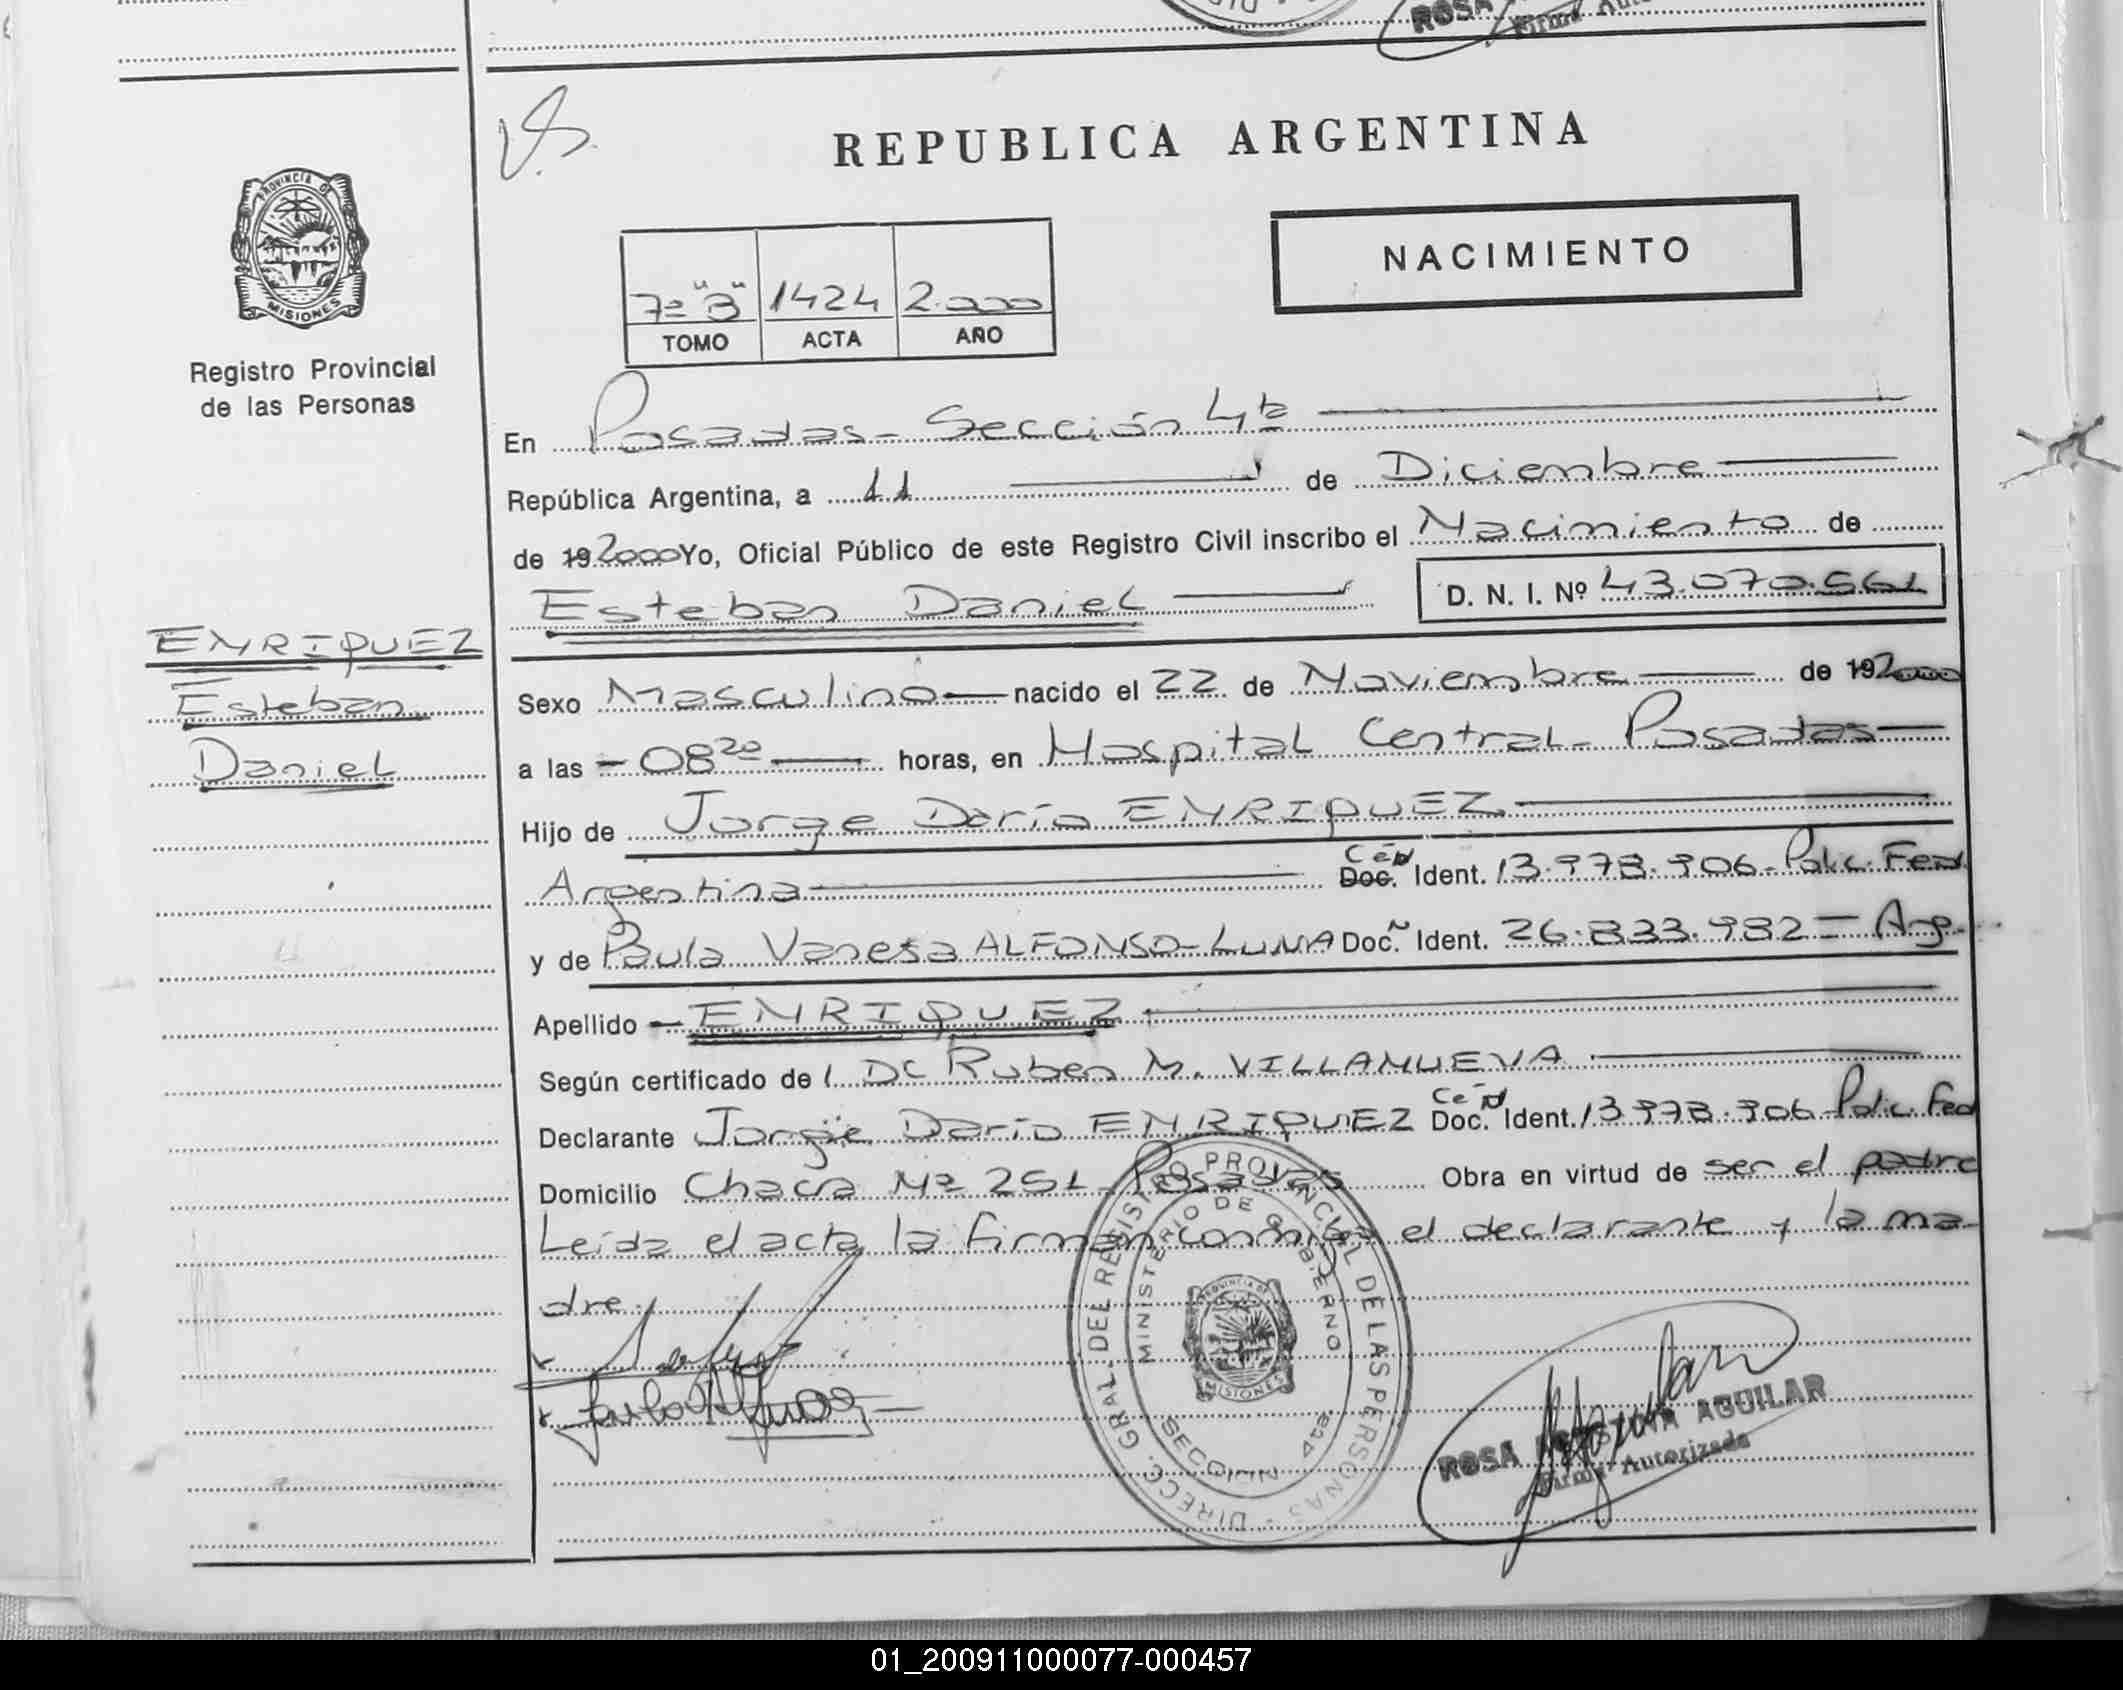 ROSA
Firma Au
REPUBLICA ARGENTINA
NACIMIENTO
7º "B" 1424 2.000
TOMO ACTA AÑO
PROVINCIA DE
MISIONES
Registro Provincial
de las Personas
En Posadas - Sección 4ta
República Argentina, a 11 de Diciembre
de 19 2000 Yo, Oficial Público de este Registro Civil inscribo el Nacimiento de
Esteban Daniel D. N. I. Nº 43.070.561
ENRIQUEZ
Esteban
Daniel
Sexo Masculino nacido el 22 de Noviembre de 19 2000
a las - 08 20 horas, en Hospital Central - Posadas
Hijo de Jorge Darío ENRIQUEZ
Argentina Céd Doc. Ident. 13.978.906 - Polic. Fed.
y de Paula Vanesa ALFONSO - LUNA Doc. Ident. 26.833.982 = Arg.
Apellido - ENRIQUEZ
Según certificado de l DC Ruben M. VILLANUEVA
Declarante Jorge Darío ENRIQUEZ Céd Doc. Ident. 13.978.906 - Polic. Fed
Domicilio Chacra Nº 251 - Posadas Obra en virtud de ser el padre
Leída el acta la firman conmigo el declarante y la ma-
dre.
DIRECC. GRAL. DEL REGISTRO PROVINCIAL DE LAS PERSONAS
MINISTERIO DE GOBIERNO
PROVINCIA DE
MISIONES
SECCION 4ta
ROSA AGUILAR
Firma Autorizada
01_200911000077-000457